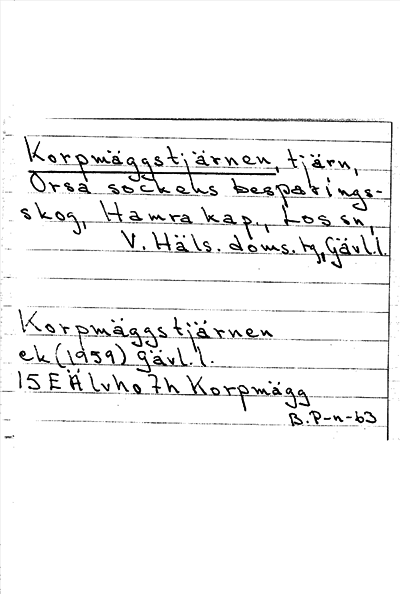 Korpmäggstjärnen, tjärn,
Orsa sockens besparings-
skog, Hamra kap., Los sn,
V. Häls. doms. tg, Gävl.l.
Korpmäggstjärnen
ek (1959) Gävl.l.
15E Älvho 7h Korpmägg
B.P-n-63